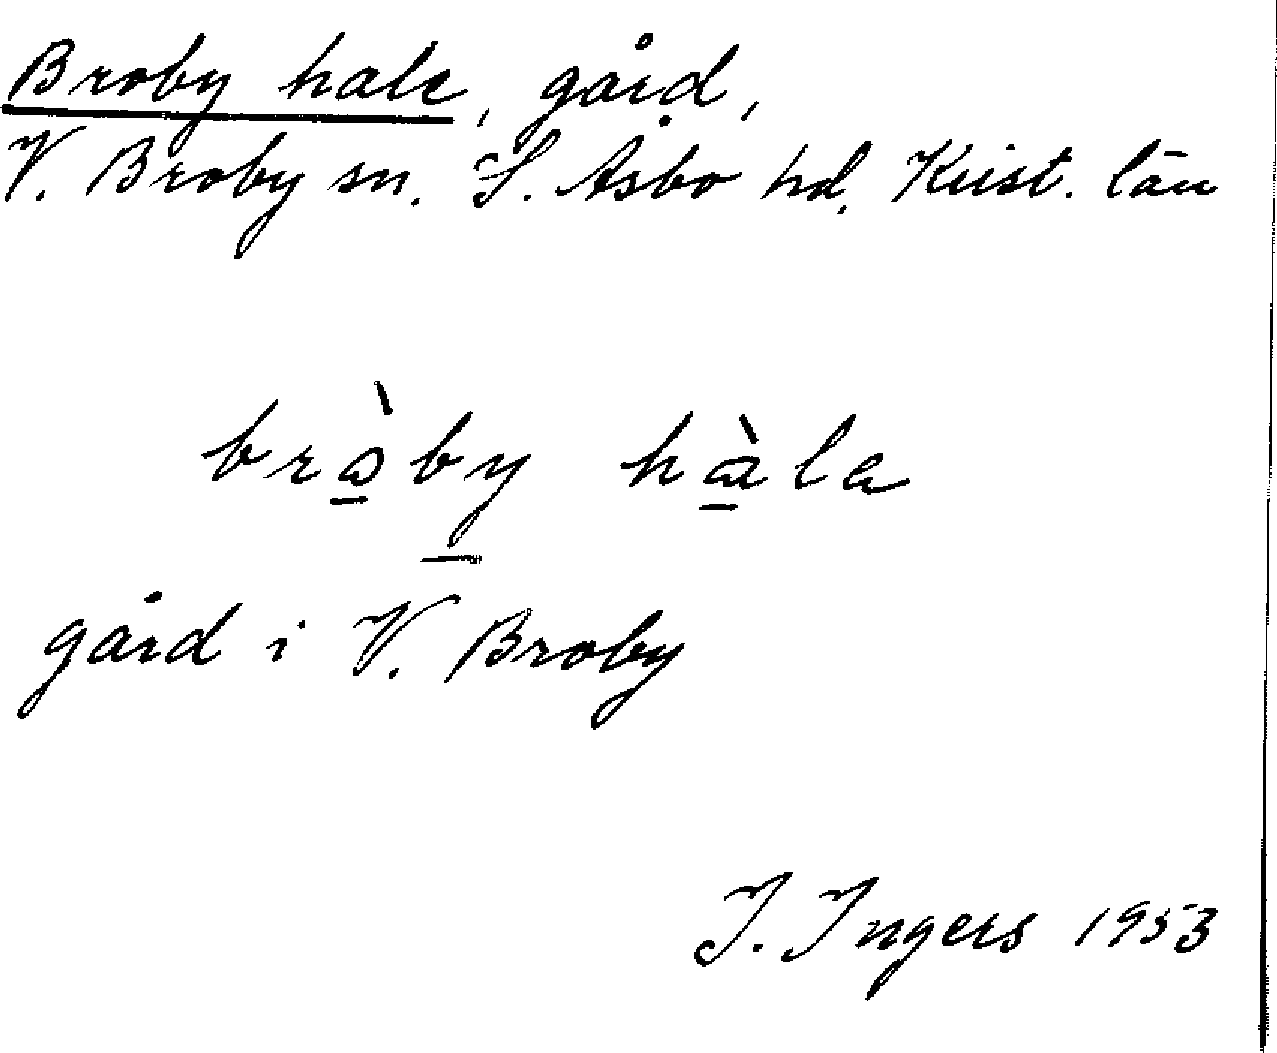 Broby hale, gård,
V. Broby sn. S. Åsbo hd. Krist. län
bròby hàla
gård i V. Broby
I. Ingers 1953